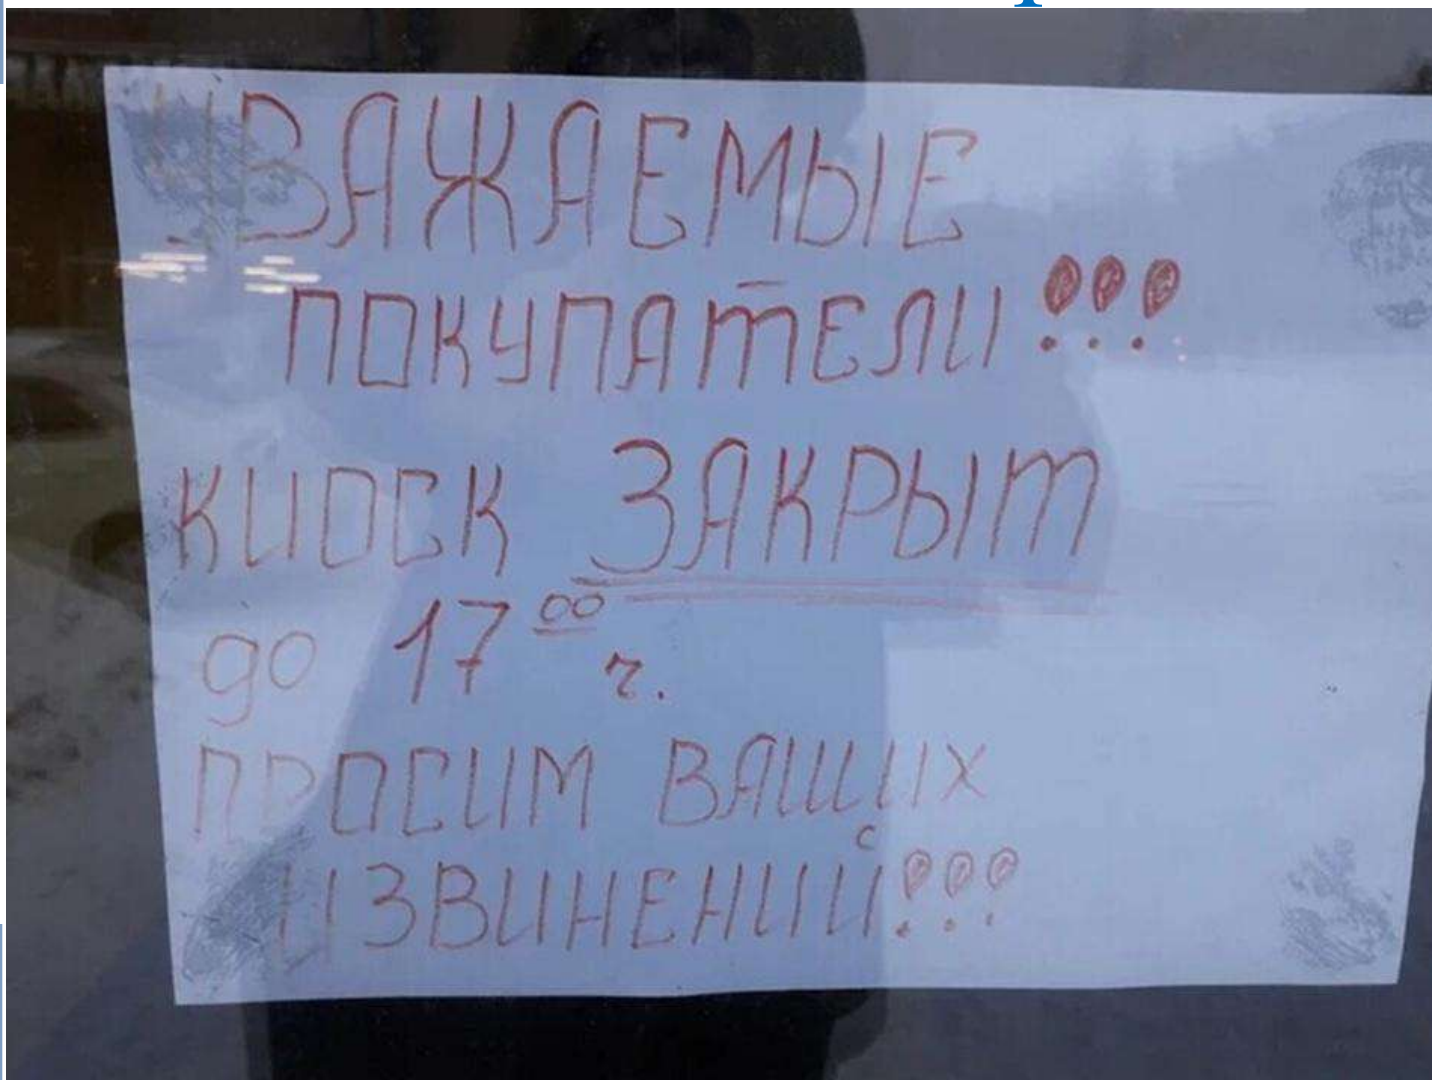 УВАЖАЕМЫЕ
ПОКУПАТЕЛИ!!!
КИОСК ЗАКРЫТ
до 17⁰⁰ ч.
ПРОСИМ ВАШИХ
ИЗВИНЕНИЙ!!!